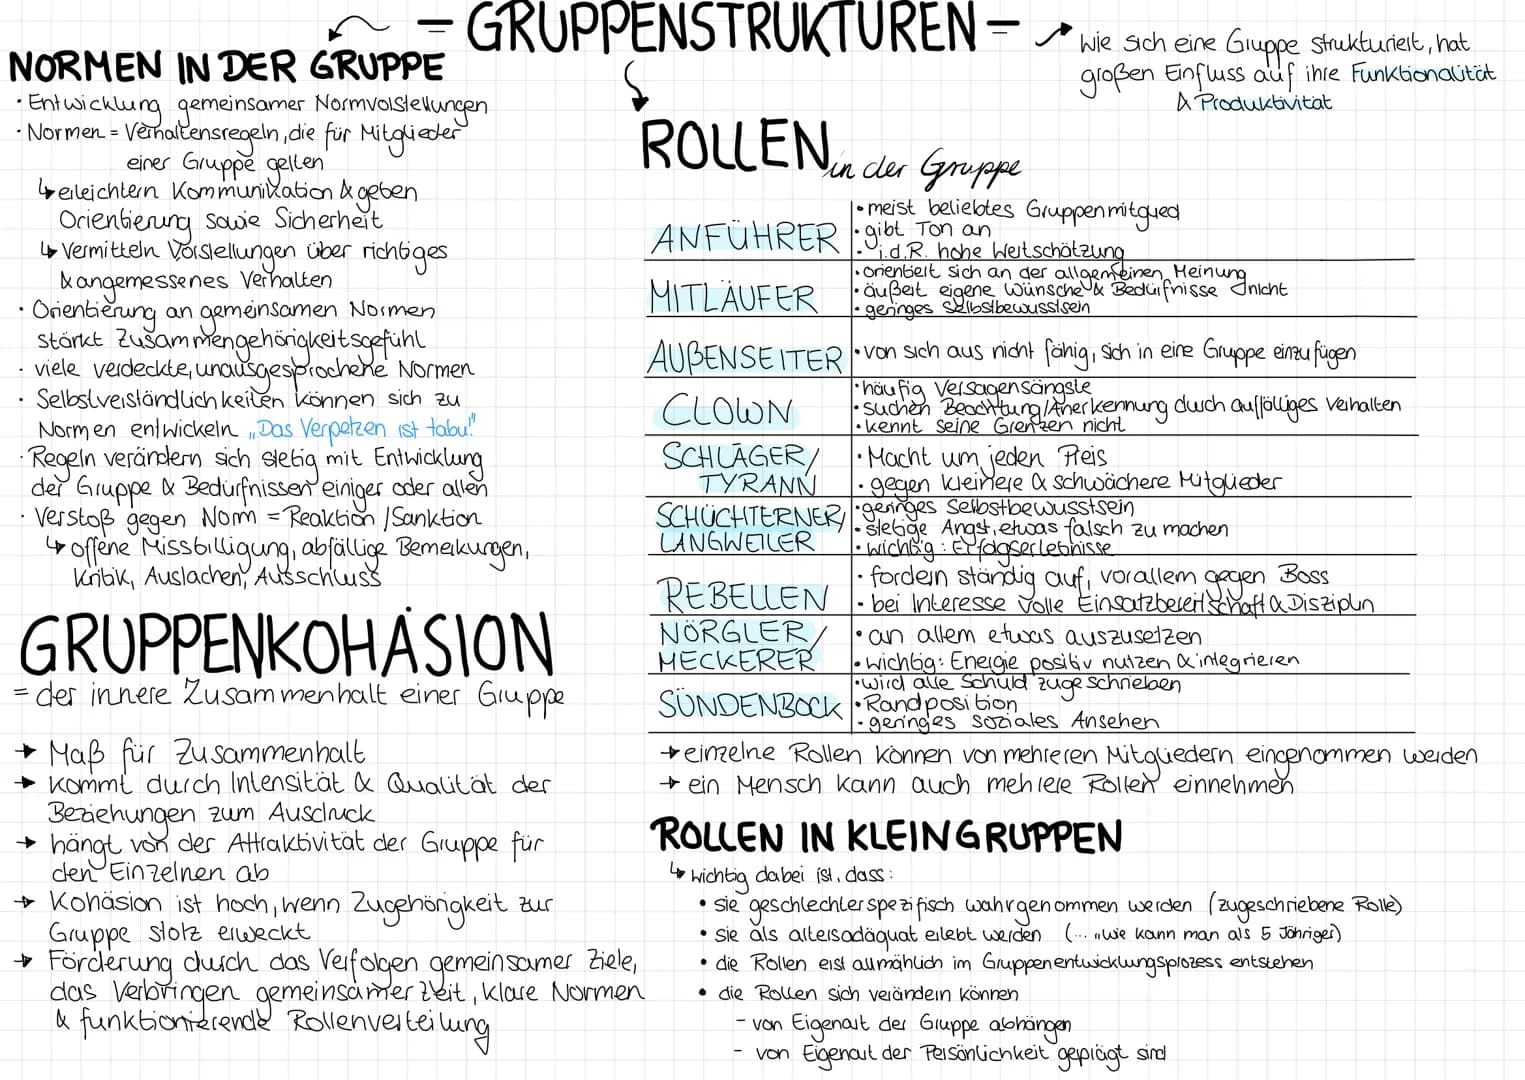 = GRUPPENSTRUKTUREN =
Wie sich eine Gruppe strukturiert, hat
großen Einfluss auf ihre Funktionalität
& Produktivität
NORMEN IN DER GRUPPE
• Entwicklung gemeinsamer Normvorstellungen
• Normen = Verhaltensregeln, die für Mitglieder
einer Gruppe gelten
↳ erleichtern Kommunikation & geben
Orientierung sowie Sicherheit
↳ Vermitteln Vorstellungen über richtiges
& angemessenes Verhalten
• Orientierung an gemeinsamen Normen
stärkt Zusammengehörigkeitsgefühl
• viele verdeckte, unausgesprochene Normen
• Selbstverständlichkeiten können sich zu
Normen entwickeln „Das Verpetzen ist tabu!"
• Regeln verändern sich stetig mit Entwicklung
der Gruppe & Bedürfnissen einiger oder allen
• Verstoß gegen Norm = Reaktion / Sanktion
↳ offene Missbilligung, abfällige Bemerkungen,
Kritik, Auslachen, Ausschluss
GRUPPENKOHÄSION
= der innere Zusammenhalt einer Gruppe
→ Maß für Zusammenhalt
→ kommt durch Intensität & Qualität der
Beziehungen zum Ausdruck
→ hängt von der Attraktivität der Gruppe für
den Einzelnen ab
→ Kohäsion ist hoch, wenn Zugehörigkeit zur
Gruppe stolz erweckt
→ Förderung durch das Verfolgen gemeinsamer Ziele,
das Verbringen gemeinsamer Zeit, klare Normen
& funktionierende Rollenverteilung
ROLLEN in der Gruppe
ANFÜHRER
• meist beliebtes Gruppenmitglied
• gibt Ton an
• i.d.R. hohe Wertschätzung
MITLÄUFER
• orientiert sich an der allgemeinen Meinung
• äußert eigene Wünsche & Bedürfnisse nicht
• geringes Selbstbewusstsein
AUßENSEITER
• von sich aus nicht fähig, sich in eine Gruppe einzufügen
CLOWN
• häufig Versagensängste
• suchen Beachtung/Anerkennung durch auffälliges Verhalten
• kennt seine Grenzen nicht
SCHLÄGER/
TYRANN
• Macht um jeden Preis
• gegen kleinere & schwächere Mitglieder
SCHÜCHTERNER/
LANGWEILER
• geringes Selbstbewusstsein
• stetige Angst, etwas falsch zu machen
• wichtig: Erfolgserlebnisse
REBELLEN
• fordern ständig auf, vorallem gegen Boss
• bei Interesse volle Einsatzbereitschaft & Disziplin
NÖRGLER/
MECKERER
• an allem etwas auszusetzen
• wichtig: Energie positiv nutzen & integrieren
SÜNDENBOCK
• wird alle Schuld zugeschrieben
• Randposition
• geringes soziales Ansehen
→ einzelne Rollen können von mehreren Mitgliedern eingenommen werden
→ ein Mensch kann auch mehrere Rollen einnehmen
ROLLEN IN KLEINGRUPPEN
↳ wichtig dabei ist, dass:
• sie geschlechterspezifisch wahrgenommen werden (zugeschriebene Rolle)
• sie als altersadäquat erlebt werden (... „wie kann man als 5 Jähriger)
• die Rollen erst allmählich im Gruppenentwicklungsprozess entstehen
• die Rollen sich verändern können
- von Eigenart der Gruppe abhängen
- von Eigenart der Persönlichkeit geprägt sind